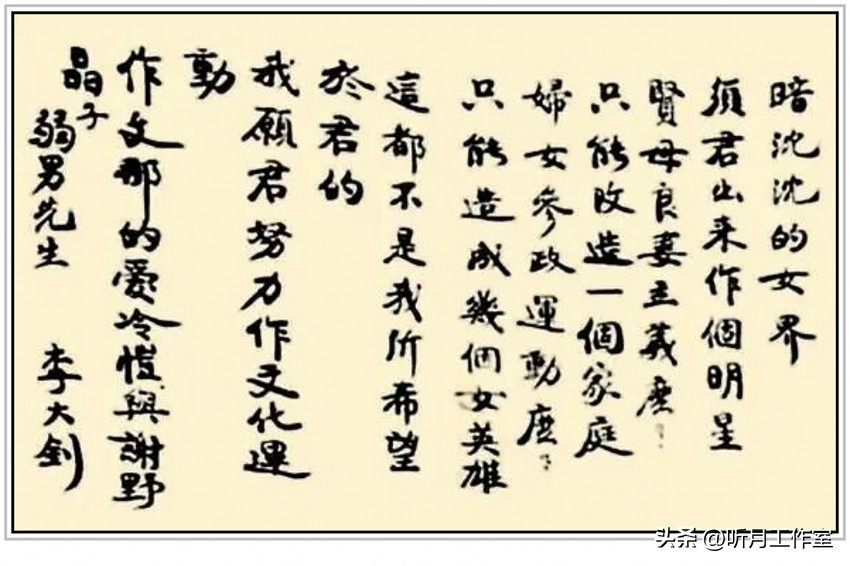 暗沈沈的女界
須君出来作個明星
賢母良妻主義麽？
只能改造一個家庭
婦女參政運動麽？
只能造成幾個女英雄
這都不是我所希望
於君的
我願君努力作文化運
動
作文那的愛冷愷與謝野
晶子
弱男先生 李大釗
头条 @听月工作室